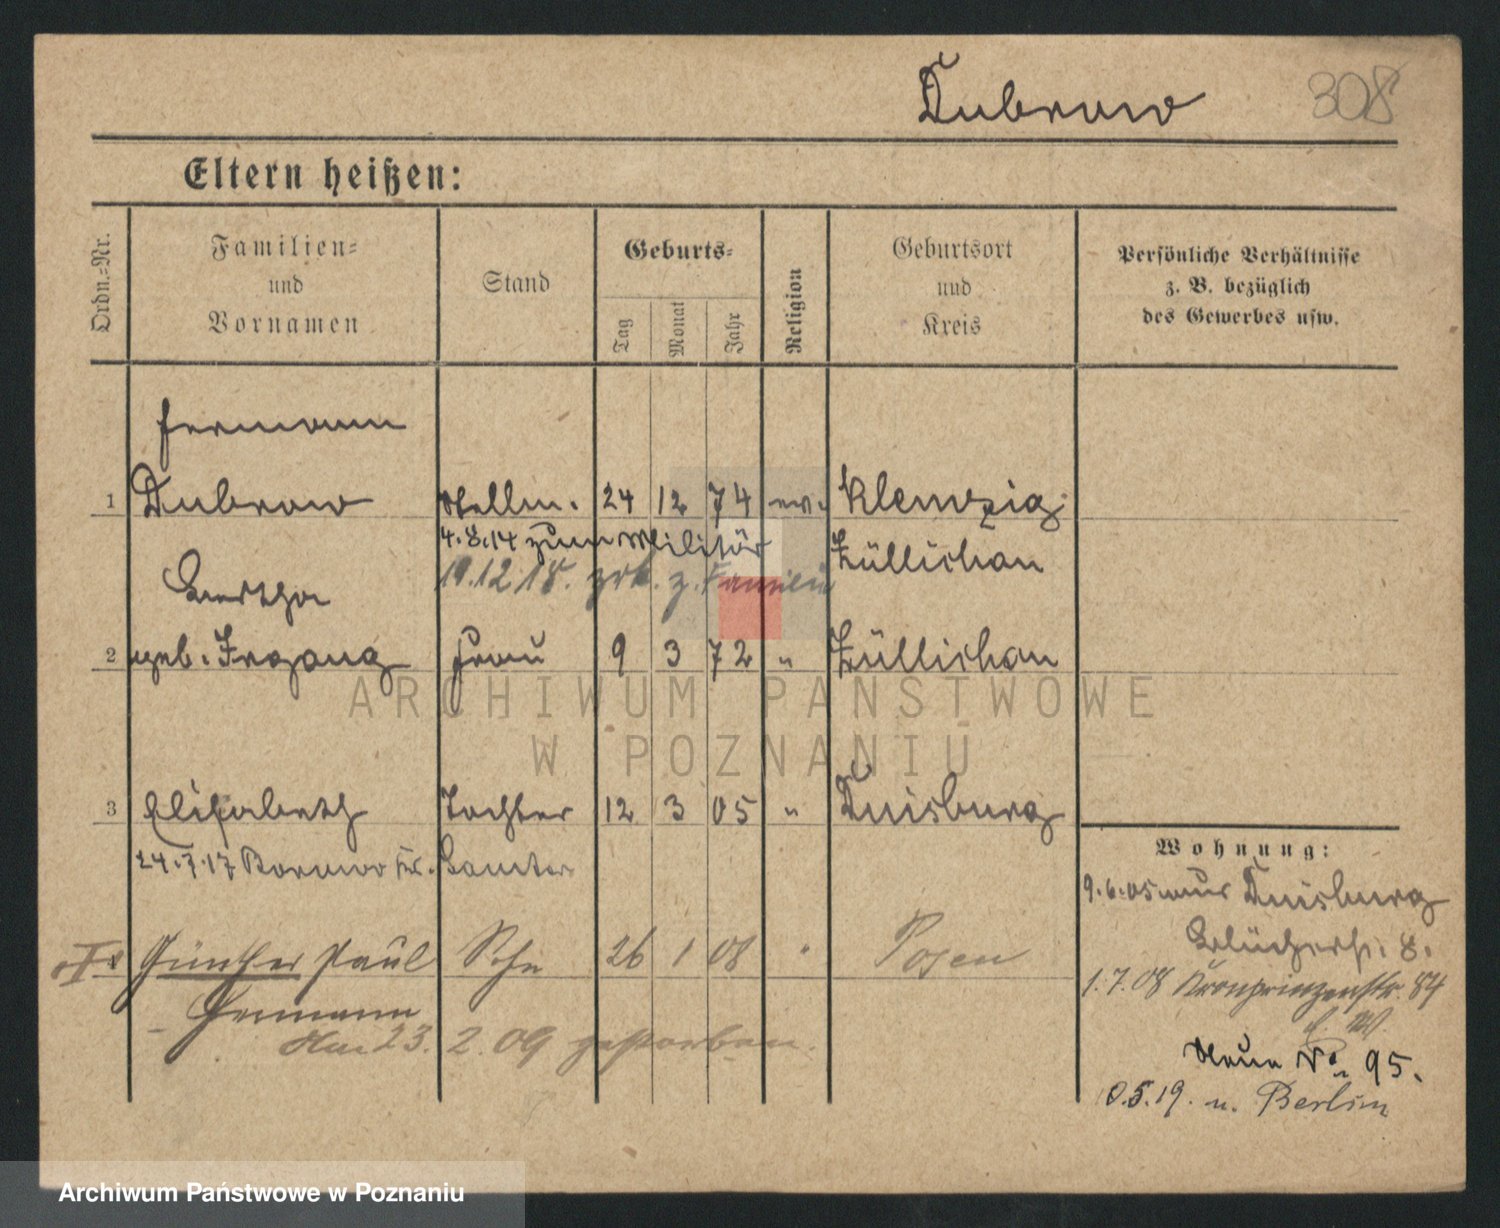 Dubrow 308
Eltern heißen:
Ordn.-Nr.
Familien-
und
Vornamen
Stand
Geburts-
Tag
Monat
Jahr
Religion
Geburtsort
und
Kreis
Persönliche Verhältnisse
z. B. bezüglich
des Gewerbes usw.
Hermann
1 Dubrow 24 12 74 ev. Klemzig
4.8.14 zum Militär Züllichau
19.12.18. zrk. z. Familie
Bertha
2 geb. Irrgang Frau 9 3 72 " Züllichau
ARCHIWUM PAŃSTWOWE
W POZNANIU
3 Elisabeth Tochter 12 3 05 " Duisburg
24.7.17 Borowo Kr. Samter
Wohnung:
9.6.05 aus Duisburg
Blücherstr. 8.
Günther Paul Sohn 26 1 08 " Posen
1.7.08 Kronprinzenstr. 84
Hermann
Am 23. 2. 09 gestorben.
Neue No 95.
5.19. n. Berlin
Archiwum Państwowe w Poznaniu